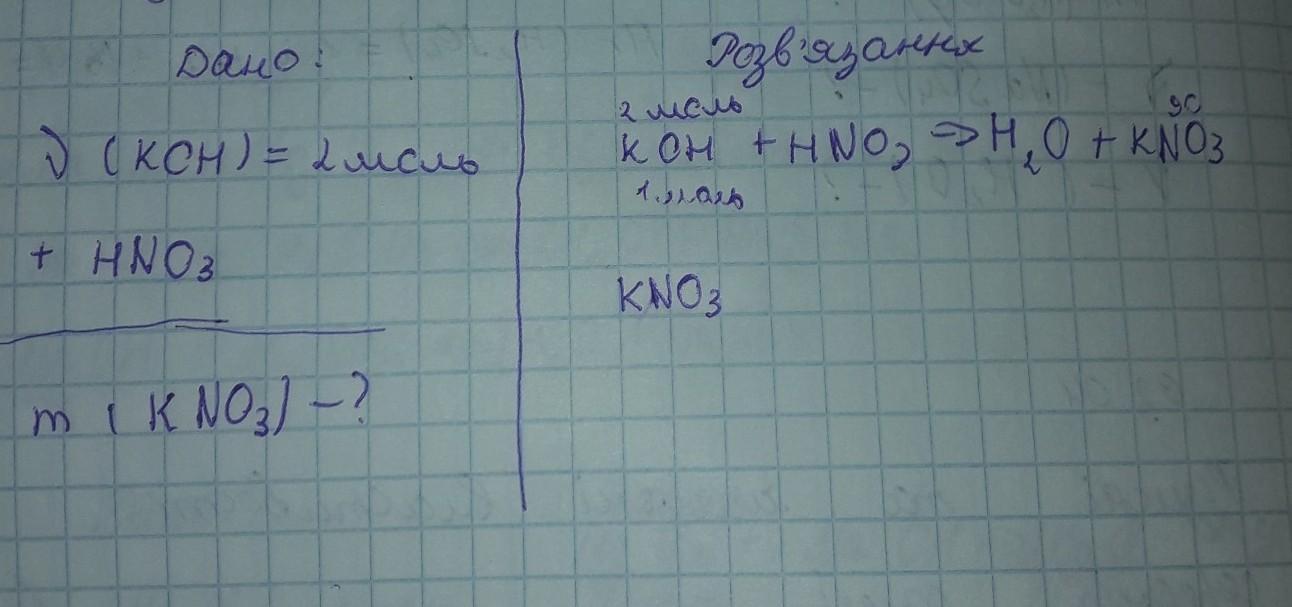 Дано:
ν (KOH) = 2 моль
+ HNO3
m (KNO3) - ?
Розв'язання
2 моль
KOH + HNO3 => H2O + KNO3
1 моль
KNO3